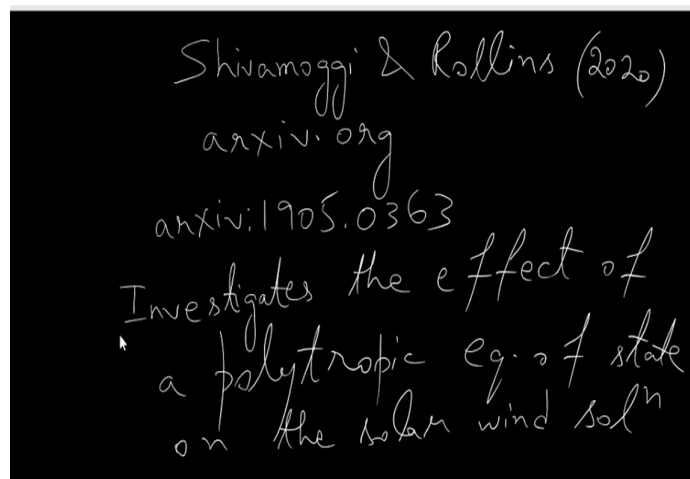 Shivamoggi & Rollins (2020)
arxiv.org
arxiv:1905.0363
Investigates the effect of
a polytropic eq. of state
on the solar wind solⁿ